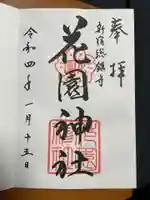 奉拝
新宿総鎮守
花園神社
令和四年一月十五日